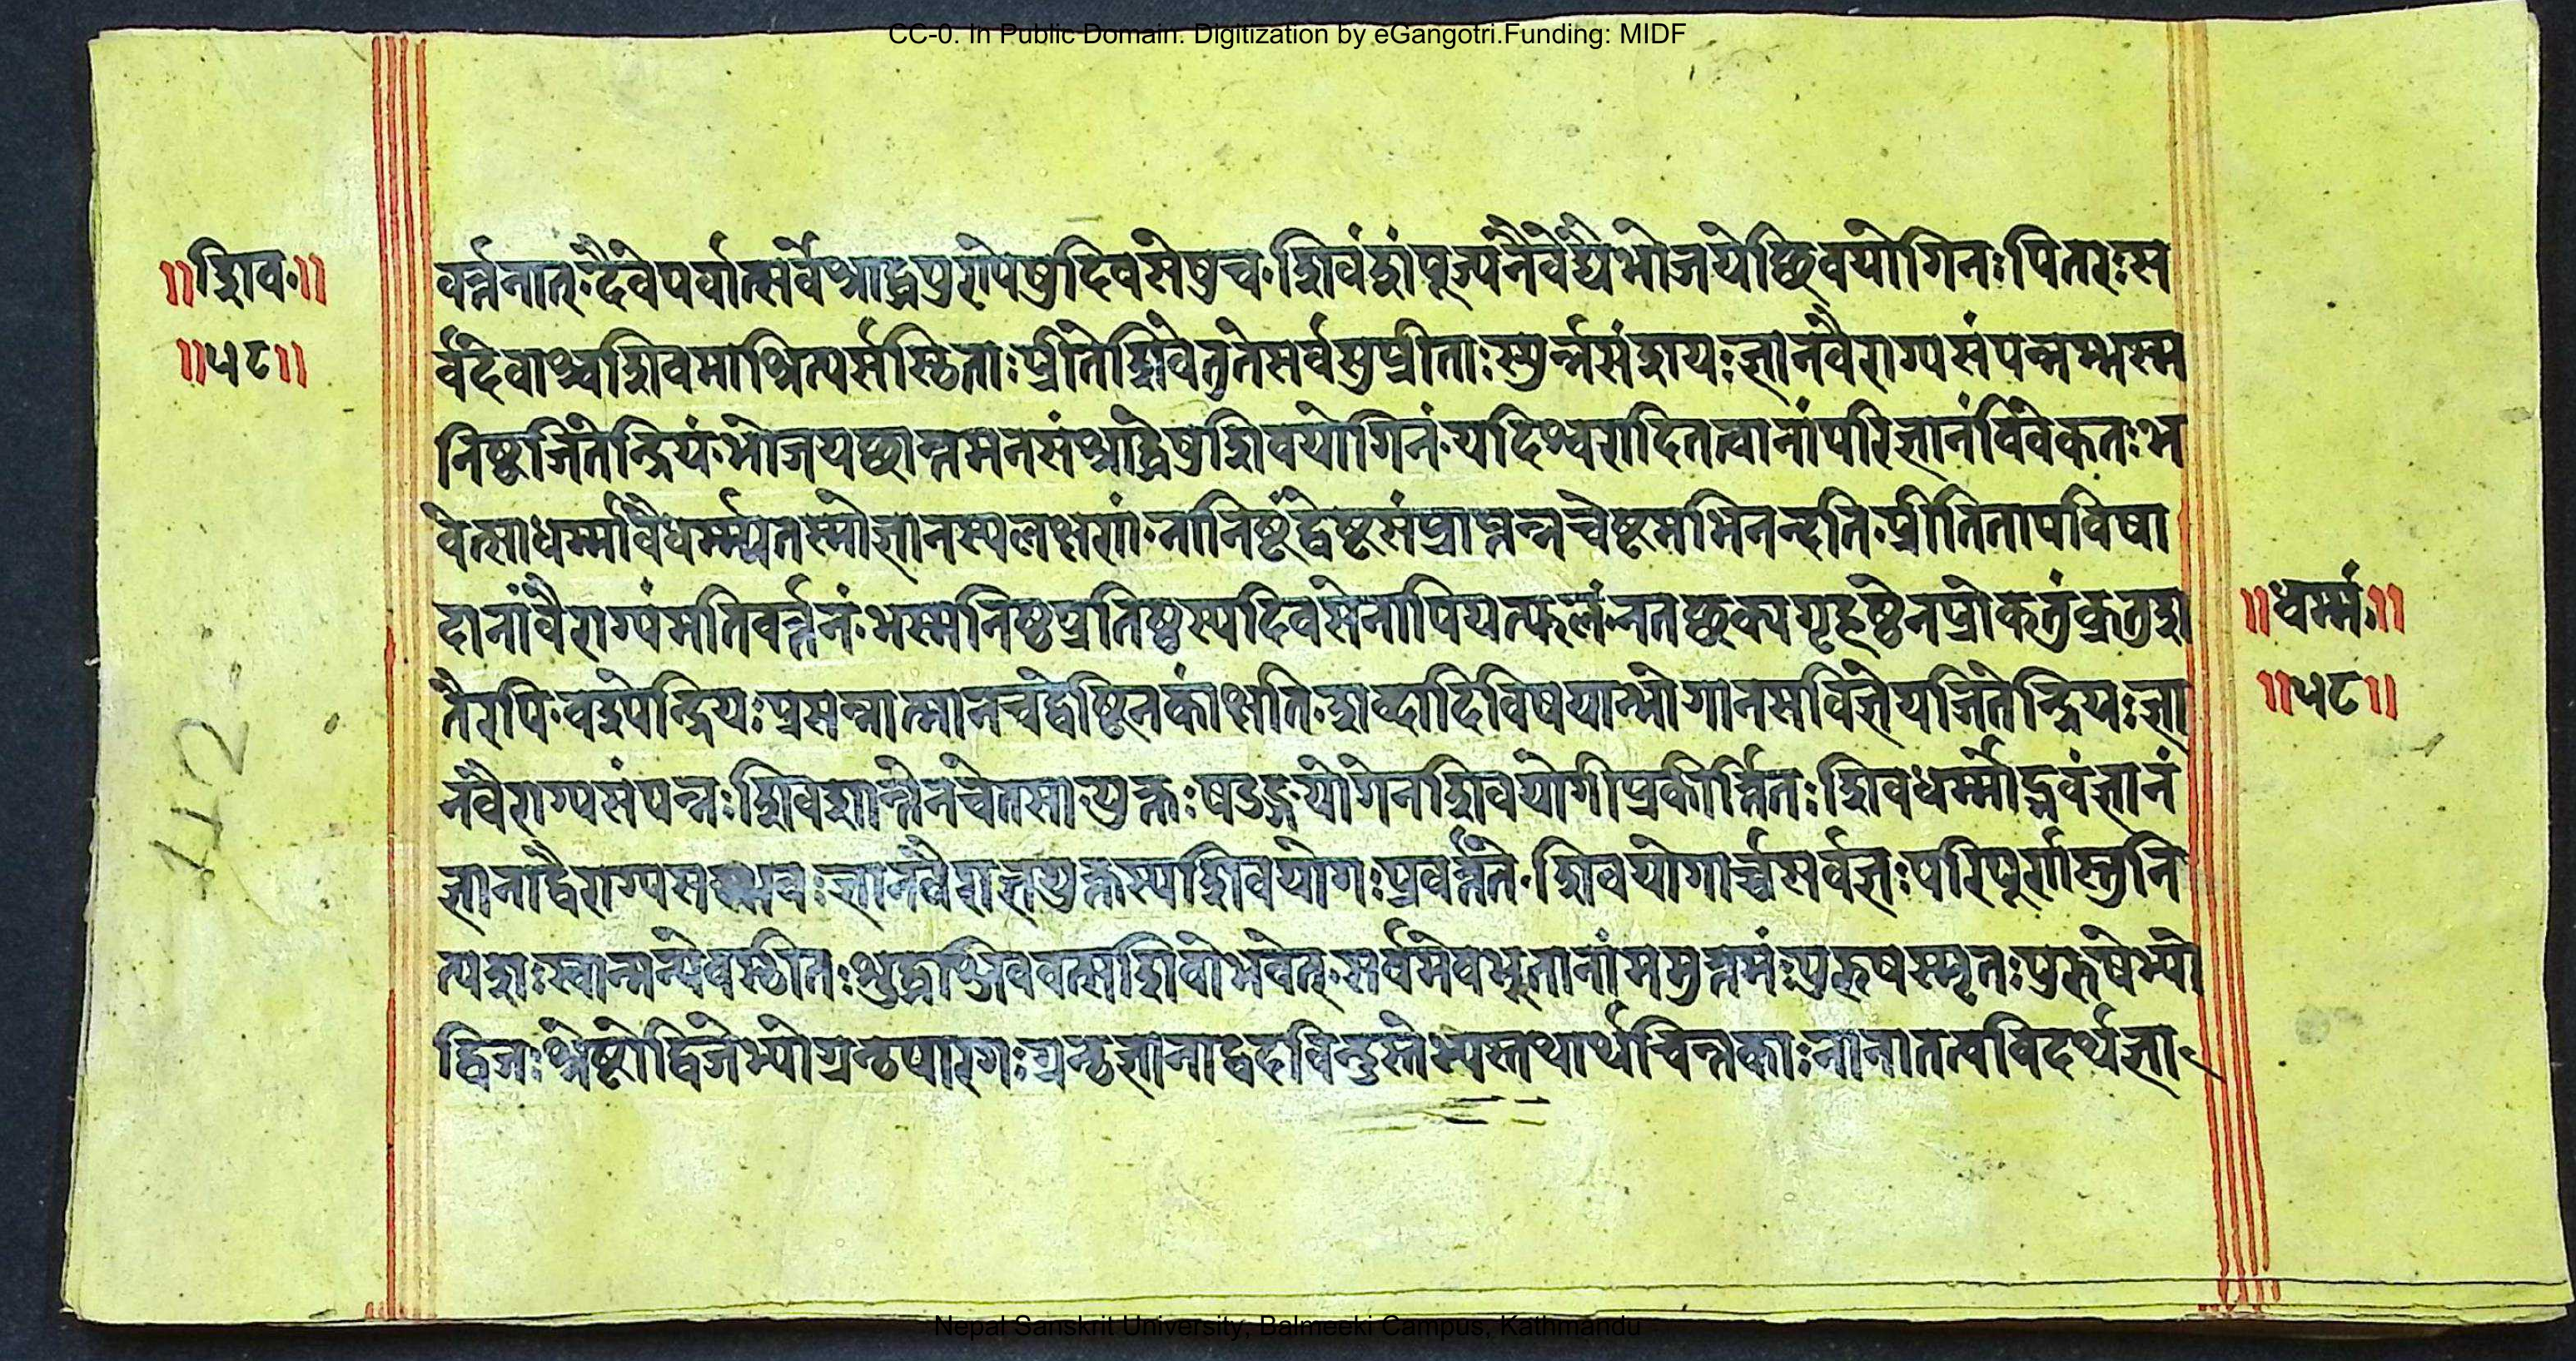 CC-0. In Public Domain. Digitization by eGangotri.Funding: MIDF
॥शिव.॥
॥५८॥
वर्त्तनात्.दैवेपर्वात्सर्वेश्राद्धपुराणेषुदिवसेषुच.शिवंशंपूज्यनैवेद्यैभोजयेच्छिवयोगिनः पितरःस
र्वदेवाश्चशिवमाश्रित्यसंस्थिताः प्रीतेशिवेतुतेसर्वसुप्रीताःस्युर्न्नसंशयः ज्ञानवैराग्यसंपन्नम्भस्म
निष्टजितेन्द्रियं.भोजयच्छान्तमनसंश्राद्धेषुशिवयोगिनं.यदिश्वरादितत्वानांपरिज्ञानंविवेकतः भ
वेत्साधर्म्मवैधर्म्म्यतस्मोज्ञानस्यलक्षणं.नानिष्टंद्वेष्टसंप्राप्तन्नचेष्टमभिनन्दति.प्रीतितापविषा
दानांवैराग्यंमतिवर्त्तनं.भस्मनिष्ठप्रतिष्ठस्यदिवसेनापियत्फलंनतच्छक्यगृहष्ठेनप्रोकतुंक्रतुश
तैरपि.वश्येन्द्रियःप्रसन्नात्मानचद्वेष्टिनकांक्षति.शब्दादिविषयान्भोगानसविज्ञेयजितेन्द्रियः ज्ञा
नवैराग्यसंपन्नः शिवशान्तेनचेतसायुक्तः षडङ्गयोगेनशिवयोगीप्रकीर्त्तितः शिवधर्म्मोद्भवंज्ञानं
ज्ञानाद्वैराग्यसम्भवः ज्ञानवैराज्ञयुक्तस्यशिवयोगःप्रवर्त्तते.शिवयोगार्च्चसर्वज्ञः परिपूर्णस्तुनि
त्यशःस्वात्मन्येवस्थीतः शुद्धःशिववत्सशिवोभवेत्.सर्वमेवभूतानांमसुत्तमंःपुरुषस्मृतः पुरुषेभ्यो
द्विजःश्रेष्टोद्विजेभ्योग्रन्थपारगः ग्रन्थज्ञानाद्वदविन्दुस्तेभ्यस्तथार्थचिन्तकाः नानातत्वविदर्थज्ञा
॥धर्म्म.॥
॥५८॥
112
Nepal Sanskrit University, Balmeeki Campus, Kathmandu